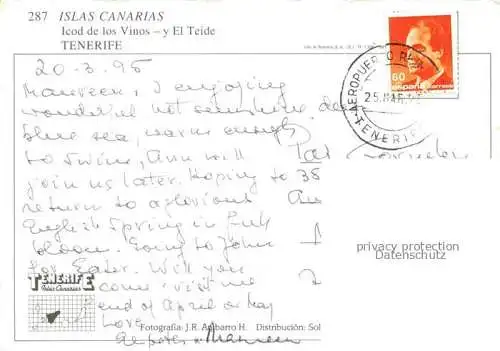 287 ISLAS CANARIAS
Icod de los Vinos – y El Teide
TENERIFE
20-3.96
Maureen, I enjoying
wonderful hot sunshine
blue sea, warm enough
to swim, Ann will
join us later. Hoping to
return to a glorious
English Spring in full
bloom. Going to John
for Easter. Will you
come visit me
end of April or May
Love
60
españa
correos
AEROPUERTO
25.MAR
TENERIFE
35
privacy protection
Datenschutz
TENERIFE
Islas Canarias
Fotografía: J.R. Aribarro H. Distribución: Sol